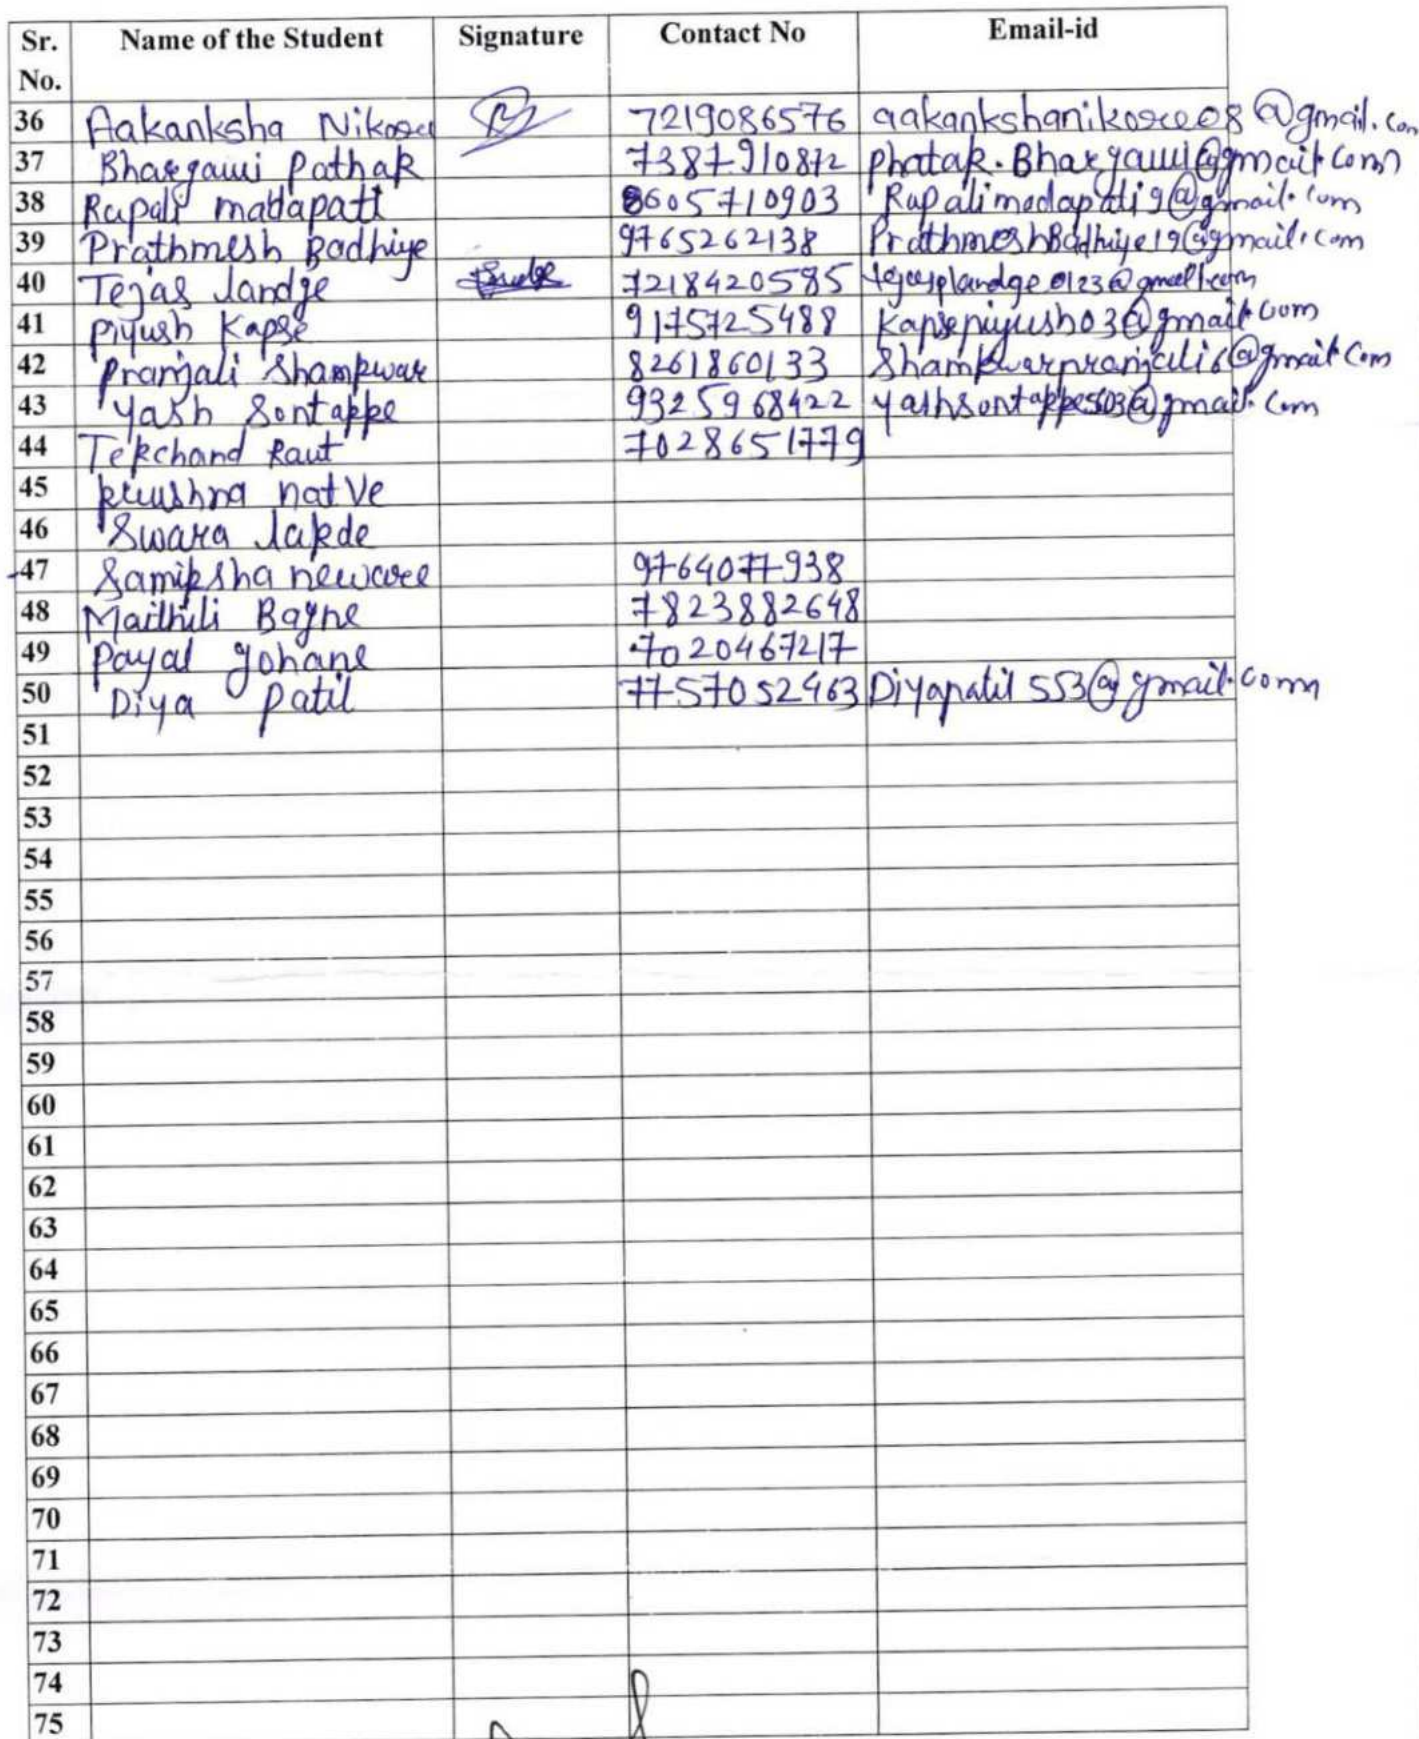 Sr. No. Name of the Student Signature Contact No Email-id
36 Aakanksha Nikose 7219086576 aakankshanikosee08@gmail.com
37 Bhargawi Pathak 7387910872 phatak.Bhargawi@gmail.com
38 Rupali madapati 8605710903 Rupalimadapati9@gmail.com
39 Prathmesh Badhiye 9765262138 PrathmeshBadhiye19@gmail.com
40 Tejas landge 7218420585 tejasplandge0123@gmail.com
41 Piyush Kapse 9175725488 Kapsepiyush03@gmail.com
42 Pranjali Shampwar 8261860133 Shampwarpranjali6@gmail.com
43 Yash Sontappe 9325968422 yashsontappe503@gmail.com
44 Tekchand Raut 7028651779
45 krushna natve
46 Swara lakde
47 Samiksha neware 9764077938
48 Maithili Bagne 7823882648
49 Payal gohane 7020467217
50 Diya Patil 7757052463 Diyapatil553@gmail.com
51
52
53
54
55
56
57
58
59
60
61
62
63
64
65
66
67
68
69
70
71
72
73
74
75